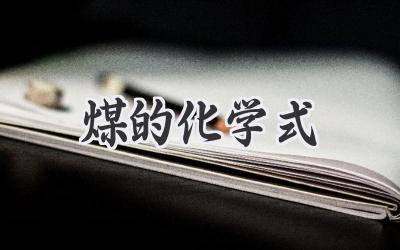 煤的化学式